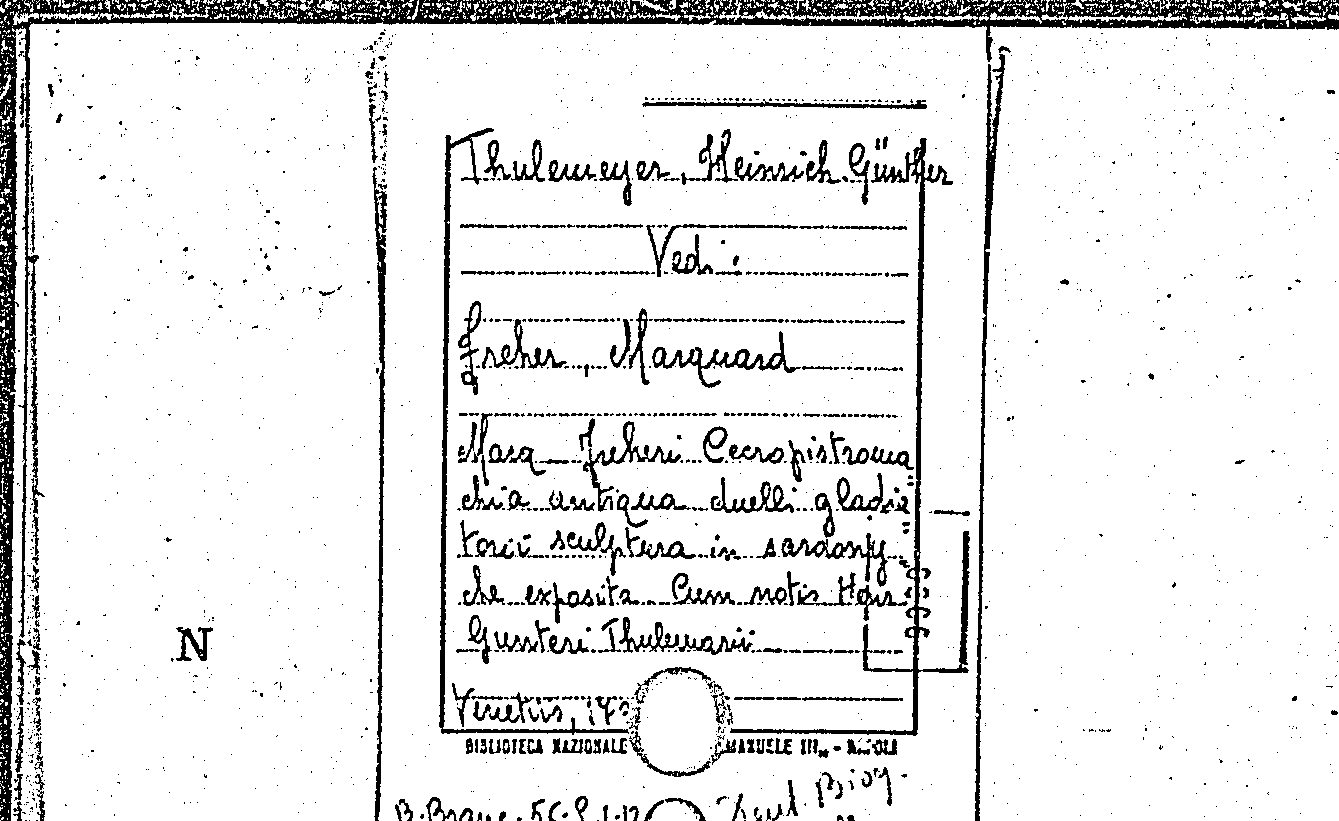 Thulemeyer, Heinrich Günther
Vedi:
Freher, Marquard
Marq. Freheri Cecropistroma
chia antiqua duelli gladia=
torii sculptura in sardony=
che exposita. Cum notis Henr.
Gunteri Thulemarii
N
Venetiis, 17
BIBLIOTECA NAZIONALE MANUELE III - NAPOLI
B. Branc.